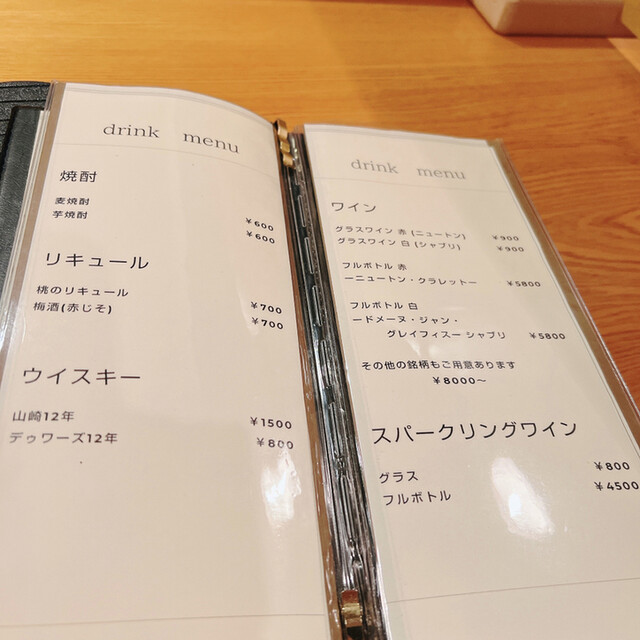 drink menu
焼酎
麦焼酎 ¥600
芋焼酎 ¥600
リキュール
桃のリキュール ¥700
梅酒(赤じそ) ¥700
ウイスキー
山崎12年 ¥1500
デゥワーズ12年 ¥800
drink menu
ワイン
グラスワイン 赤 (ニュートン) ¥900
グラスワイン 白 (シャブリ) ¥900
フルボトル 赤
ーニュートン・クラレットー ¥5800
フルボトル 白
ードメーヌ・ジャン・
グレイフィスー シャブリ ¥5800
その他の銘柄もご用意あります
¥8000～
スパークリングワイン
グラス ¥800
フルボトル ¥4500